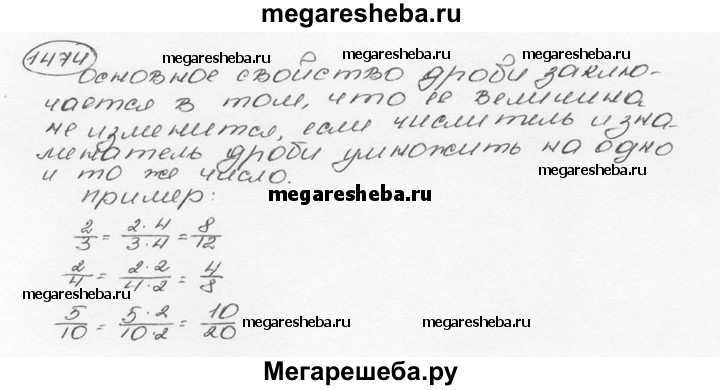 megaresheba.ru
1474
megaresheba.ru megaresheba.ru
Основное свойство дроби заклю-
чается в том, что ее величина
не изменится, если числитель и зна-
менатель дроби умножить на одно
и то же число.
megaresheba.ru megaresheba.ru megaresheba.ru
Пример:
megaresheba.ru
2/3 = 2·4/3·4 = 8/12
2/4 = 2·2/4·2 = 4/8
megaresheba.ru
5/10 = 5·2/10·2 = 10/20
megaresheba.ru megaresheba.ru megaresheba.ru
Мегарешеба.ру